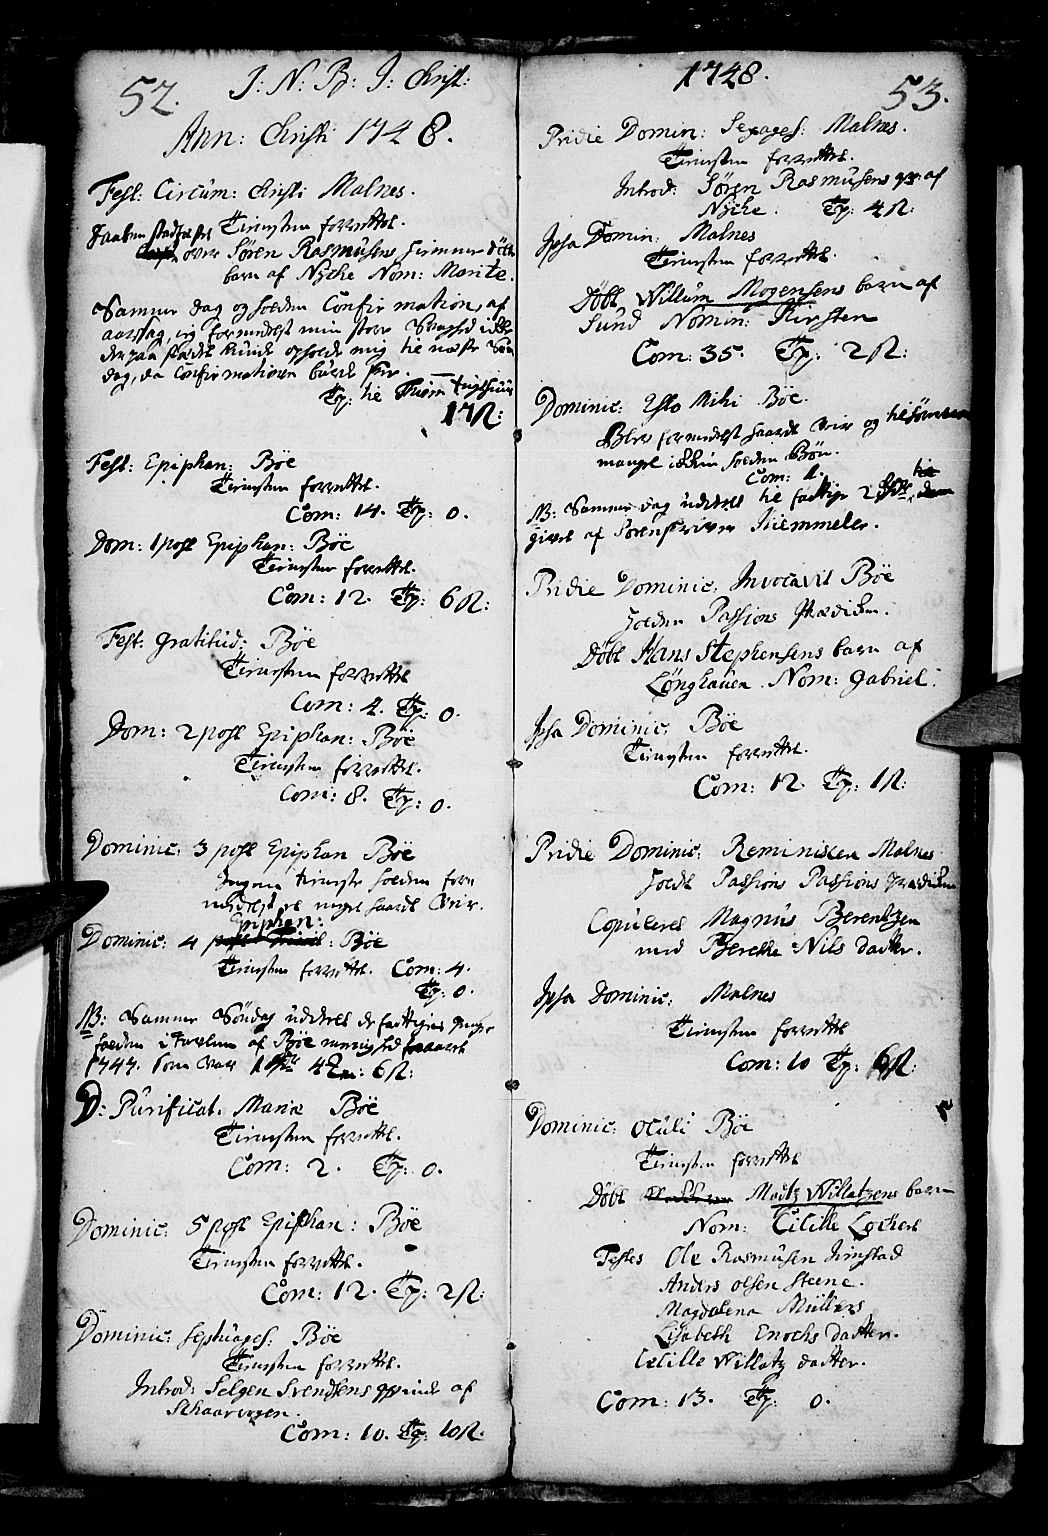 52.
J: N: B: J: Christi:
Ann: Christi 1748.
Fest: Circum: Christi Malnes.
Tienesten forrettet.
over Søren Rasmusens hiemme døbte
barn af Nyche Nom: Marite.
Samme dag og holden Confirmation, af
aarsag, ieg formedelst min store Svaghed ikke
der paa stædet kunde opholde mig til næste Søn
dag, da Confirmationen burde skee.
Tp: til
17 ß:
Fest: Epiphan: Böe
Tienesten forrettet.
Com: 14. Tp: 0.
Dom: 1 post Epiphan: Böe
Tienesten forrettet.
Com: 12. Tp: 6 ß:
Fest: gratitud: Böe
Tienesten forrettet
Com: 4. Tp: 0.
Dom: 2 post Epiphan: Böe
Tienesten forrettet.
Com: 8. Tp: 0.
Dominic: 3 post Epiphan Böe
Ingen tieneste holden for
medelst et meget haardt Veir.
Epiphan:
Dominic: 4 post: Böe
Tienesten forrettet. Com: 4.
Tp: 0.
NB: Samme Søndag uddeelt de fattiges penge
falden i Tavlen af Böe menighed
1747. som var 6 ß:
D: Purificat. Mariæ Böe
Tienesten forrettet.
Com: 2. Tp: 0.
Dominic: 5 post Epiphan: Böe
Tienesten forrettet.
Com: 12. Tp: 2 ß:
Dominic: septuages: Böe
Tienesten forrettet.
Introd: Selgen Svendsens qvinde af
Com: 10. Tp: 10 ß.
1748.
53.
Pridie Domin: Sexages: Malnes.
Tienesten forrettet.
Introd: Søren Rasmusens qv: af
Nyche. Tp: 4 ß:
Ipsa Domin: Malnes
Tienesten forrettet.
Døbt Willum Mogensens barn af
Sund Nomin: Kirsten
Com: 35. Tp: 2 ß:
Dominic: Esto Mihi Böe.
Blev formedelst haardt Veir og
mangel ikkun holden Bön.
Com: 1.
NB: Samme dag uddeelt til fattige 2
givet af Sorenskriver Kiemmeler.
Pridie Dominic: Invocavit Böe
holden Passions Prædiken.
Døbt Hans Stephensens barn af
Lønghauen. Nom: Gabriel:
Ipsa Dominic: Böe
Tienesten forrettet.
Com: 12. Tp: 1 ß:
Pridie Dominic: Reminiscere Malnes
holdt Passions Passions Prædiken
Copuleret Magnus Berentzen
med Berethe Nils datter.
Ipsa Dominic: Malnes
Tienesten forrettet
Com: 10 Tp: 6 ß:
Dominic: Oculi Böe
Tienesten forrettet
Døbt Madtz Willatzens barn
Nom: Cicille Lochert
Testes Ole Rasmusen Jinstad
Anders Olsen Steene.
Magdalena Müllers
Lisabeth Enochs datter.
Cicille Willatz datter.
Com: 13. Tp: 0.